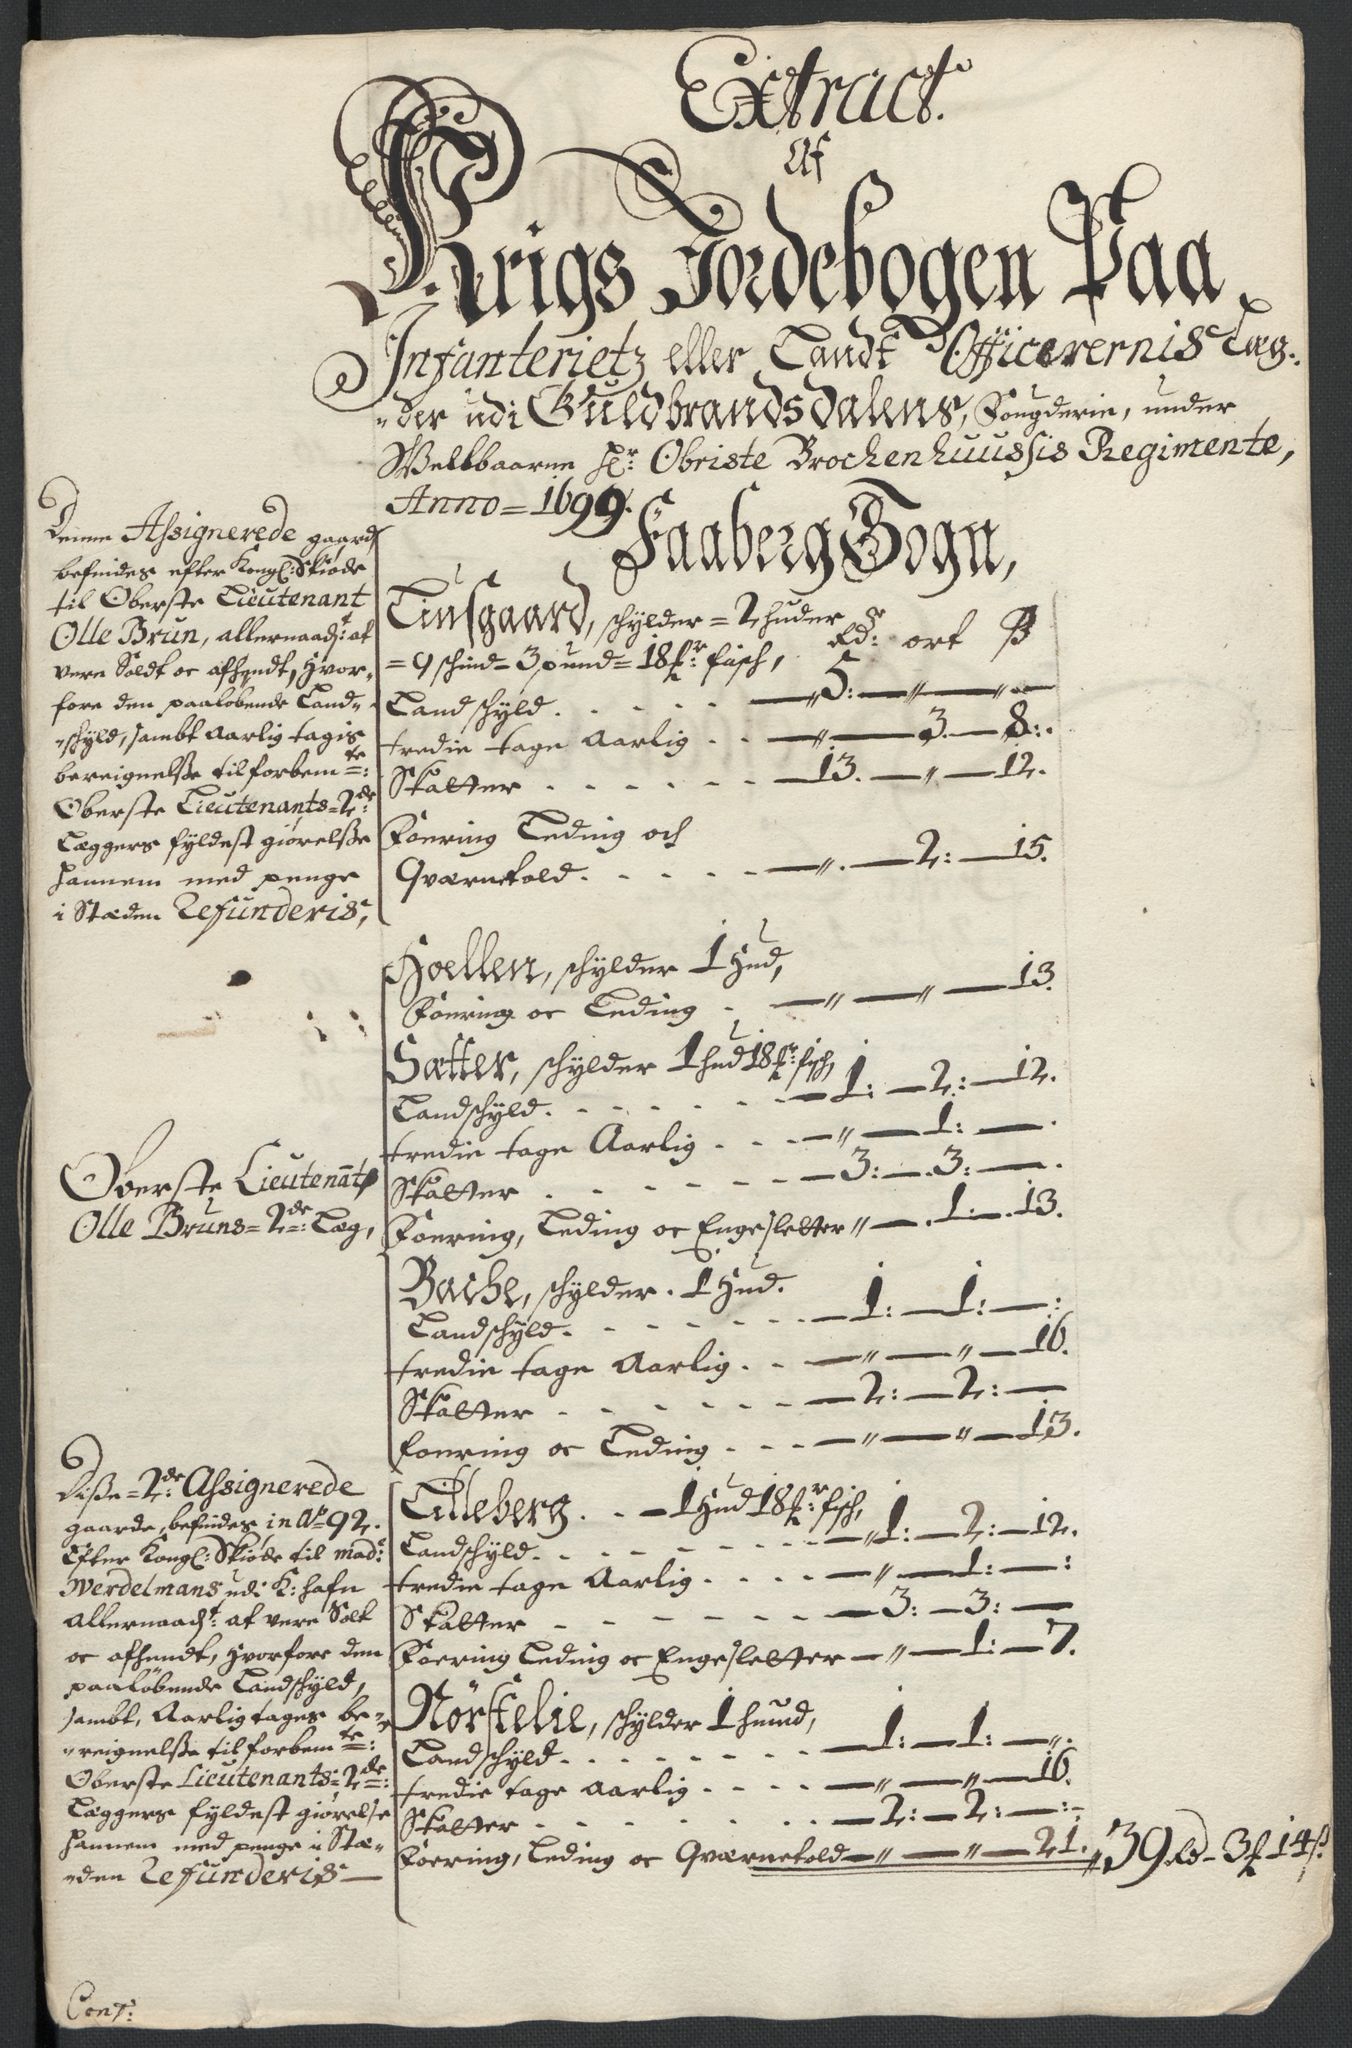 Extract.
Af
Krigs Jordebogen Paa
Infanterietz eller Landt Officerernis Læg-
"der udi Guldbrandsdalens, Fougderie, under
Welbaarne Hr: Obriste Brochenhuussis Regimente,
Anno = 1699.
Faaberg Sogn,
Denne Assignerede gaard
befindes efter Kongl: Skiøde
til Oberste Lieutenant
Olle Brun, allernaadt: at
vere Soldt oc afhendt, hvor-
fore den paaløbende Land-
"schyld, sambt Aarlig tagis
bereignelsse til forbemte:
Oberste Lieutenants = 2de
Læggers fyldest giørelsse
hannem med penge
i Stæden Refunderis,
Rdr: ort ß
schylder = 2 huder
= 9 schind = 3 pund = 18 fisch,
Landschyld . . . . . — " 5: — " — " —
tredie tage Aarlig . . — " — 3. — 8:.
Skatter . . . . . . — 13. — " — 12.
Foering Leding och
Qværnetold . . . . . — ". — 2: — 15.
Hoellen, schylder 1 Hud,
Foering oc Leding . — " — " — 13.
Sætter, schylder 1 hud 18 fisch,
Landschyld . . . . . . — 1: — 2: — 12.
tredie tage Aarlig . . . — " — 1: — .
Skatter . . . . . . — 3: — 3: — .
Foering, Leding oc Engesletter " — 1: — 13.
Oberste Lieutenants
Olle Bruns = 2de: Læg,
Bache, schylder . 1 Hud.
Landschyld . . . . . . — 1: — 1: — :
tredie tage Aarlig . . — " — " — 16.
Skatter . . . . . . — 2: — 2: —
foering oc Leding . . . — " — " — 13.
Disse = 2de: Assignerede
gaarde, befindes in Ao 92.
Efter Kongl: Skiøde til mad:
Werdelmans udi K: hafn
Allernaadt: at vere Solt
oc afhendt, hvorfore den
paaløbende Landschyld,
sambt, Aarlig tages be-
"reignelsse til forbemte:
Oberste Lieutenants = 2de:
Læggers fyldest giørelse
hannem med penge i Stæ-
"den Refunderis —
Lilleberg . . — 1 Hud 18 fisch,
Landschyld . . . . . . . — " 1: — 2: — 12.
tredie tage Aarlig . . . . — " — 1: — :
Skatter . . . . . . — 3: — 3: —
Foering Leding oc Engesletter — " — 1: — 7.
Nörstelie, schylder 1 huud,
Landschyld . . . . . . . — 1: — 1: — ".
tredie tage Aarlig . . . . — " — " — 16.
Skatter . . . . . . . — 2: — 2: — :
Foering, Leding oc Qværnetold — " — " — 21. " 39 rd - 3 14 ß
Cont: